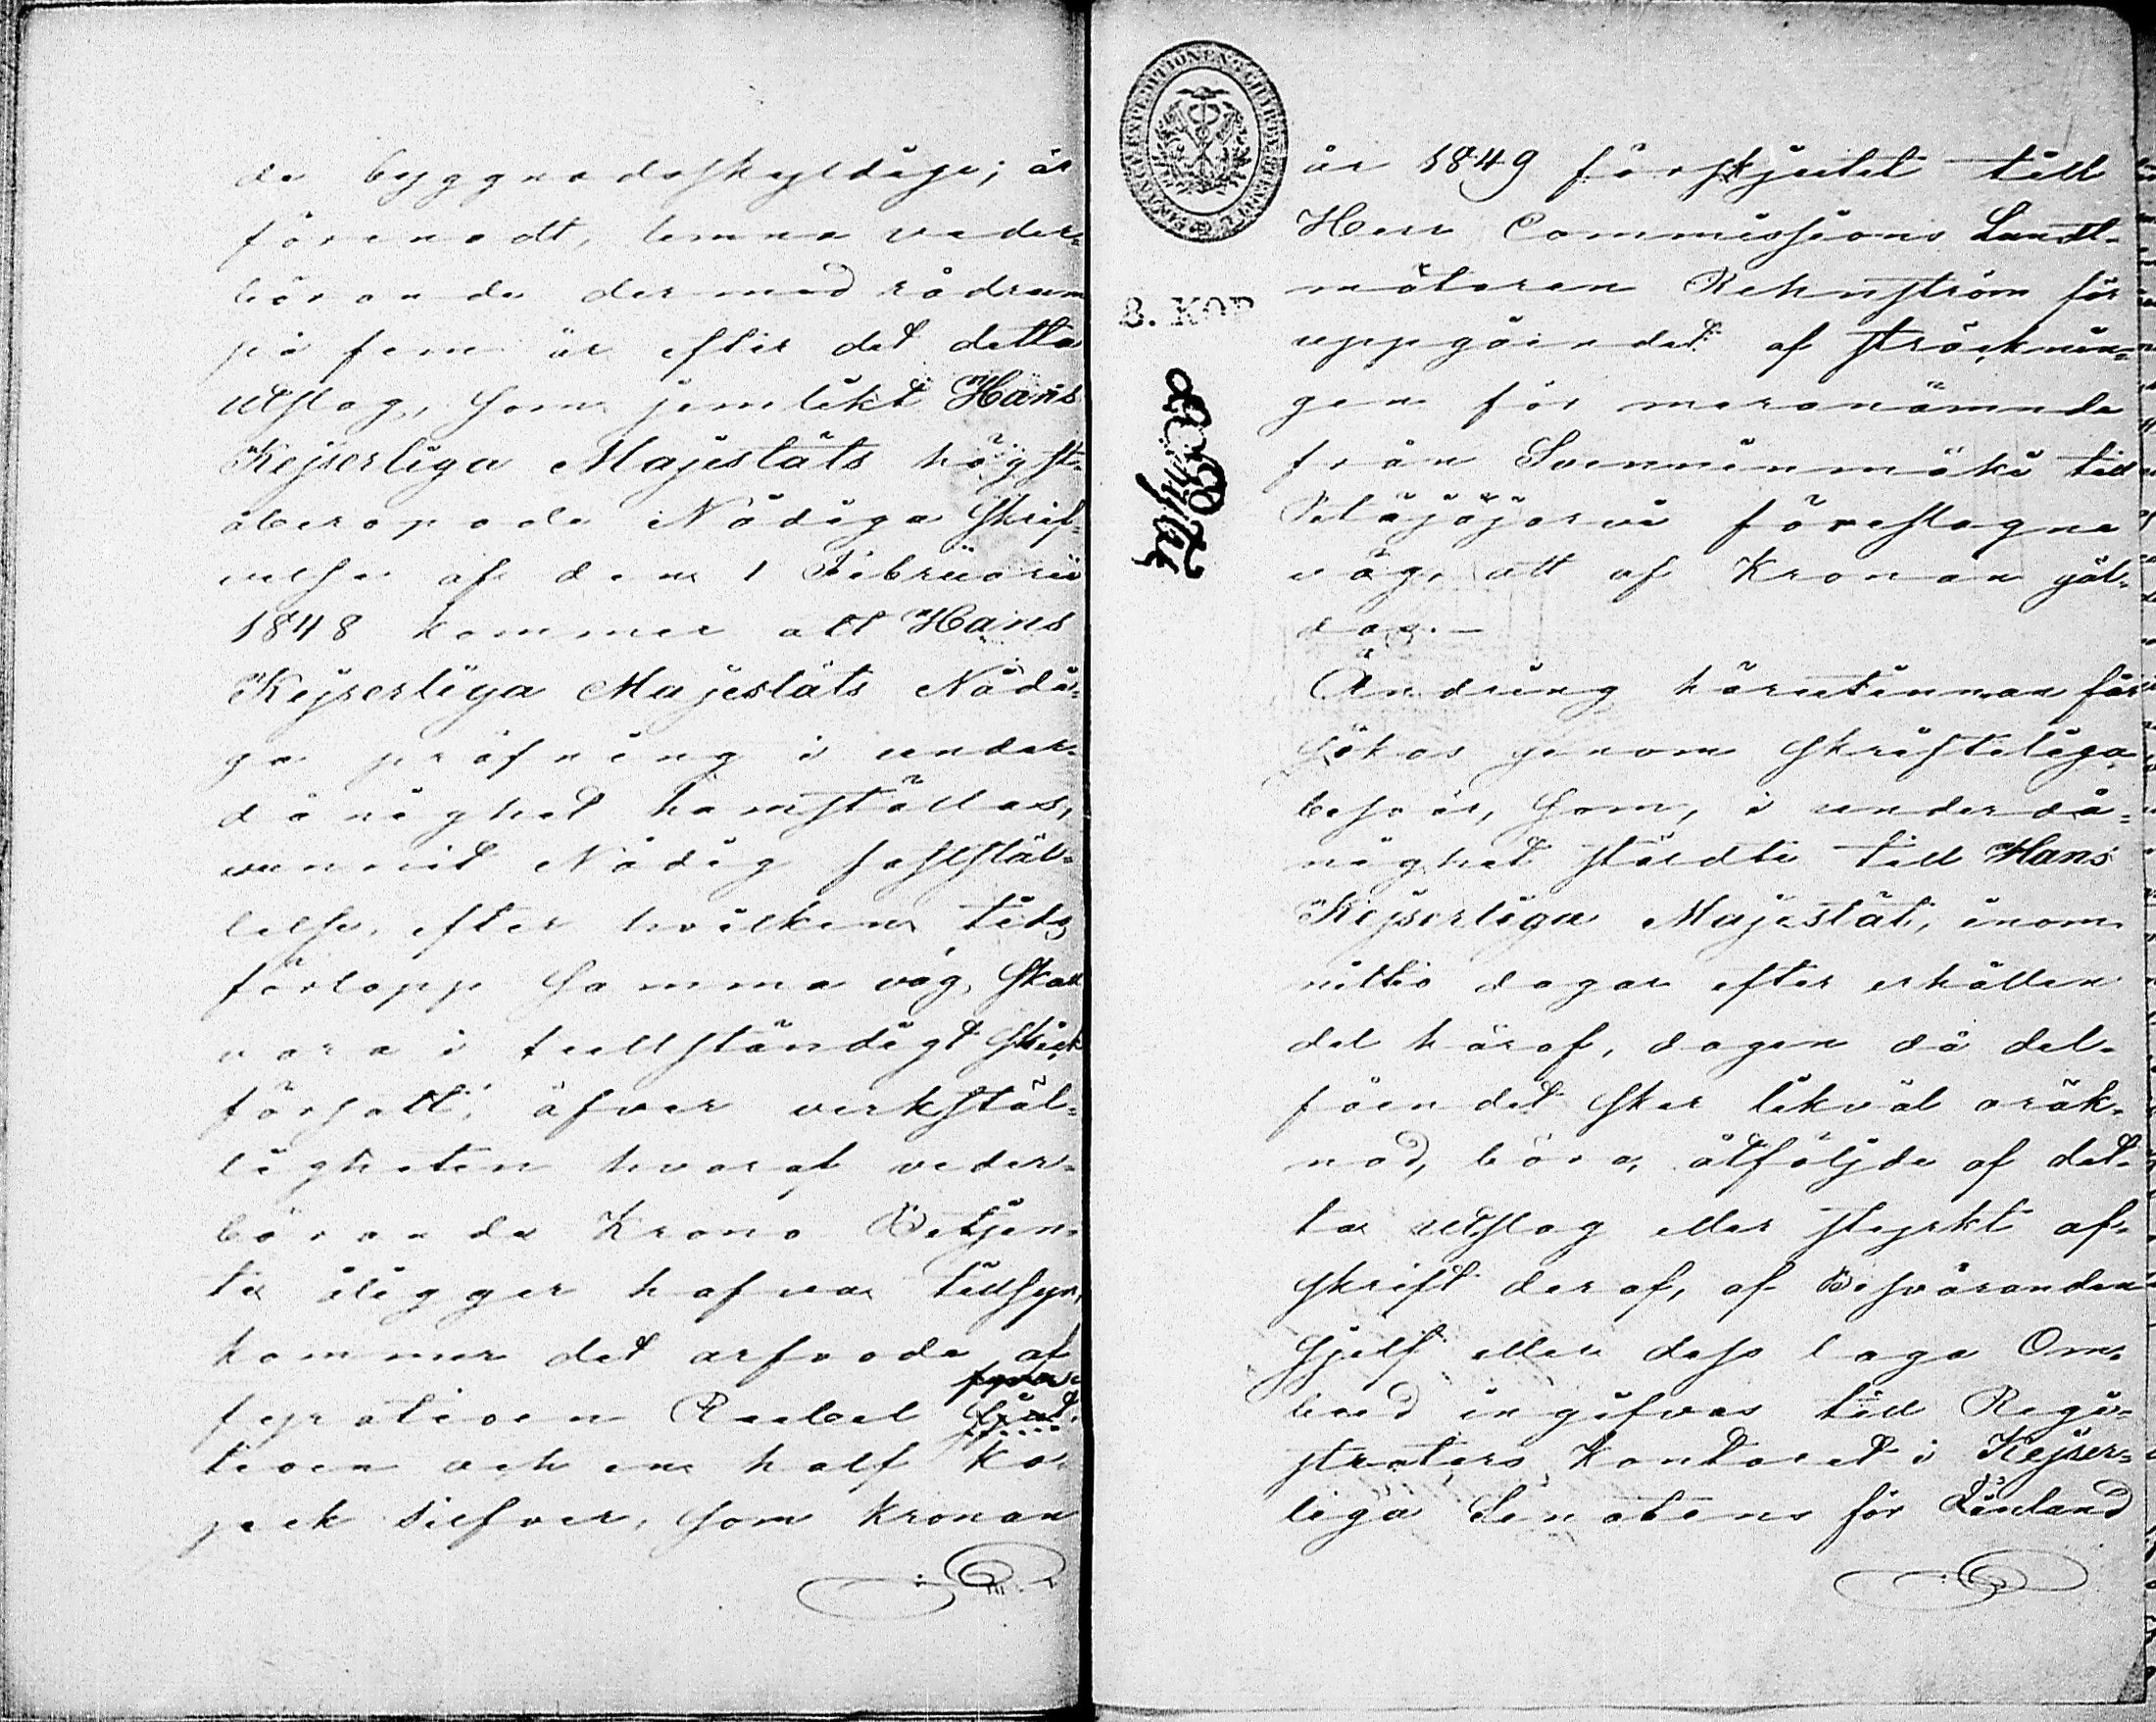 de byggnadsskyldige; är
förenadt, lemna veder-
börande dermed rådrum
på fem år efter det detta
utslag, som jemlikt Hans
Kejserliga Majestäts högst-
åberopade Nådiga Skrif-
velse af den 1 Februarii
1848 kommer att Hans
Kejserliga Majestäts Nådi-
ga pröfning i under-
dånighet hemställas,
vunnit Nådig fastställ-
lelse, efter hvilken tids
förlopp samma väg, skall
vara i fullständigt skick
försatt, öfver verkstäl-
ligheten hvaraf veder-
börande Krono Betjen-
te åligger hafva tillsyn,
kommer det arfvode af
fyratioen Rubel
tioen och en half Ko-
pek silfver, som Kronan
år 1849 förskjutit till
Herr Commissions Landt-
mätaren Rehnström för
uppgörandet af sträcknin-
gen för meranämnde
från Suenninmäki till
föreslagne
väg, att af Kronan gäl-
das.-
Ändring härutinnan får
sökas genom skrifteliga
besvär, som, i underdå-
nighet stälde till Hans
Kejserliga Majestät, inom
nittio dagar efter erhållen
del häraf, dagen då del-
fåendet sker likväl oräk-
nad, böra, åtföljde af det-
ta utslag eller styrkt af-
skrift deraf, af Besvären den
sjelf eller dess laga Om-
bud ingifvas till Regi-
strators Kontoret i Kejser-
liga Senatens för Finland
8. KOP